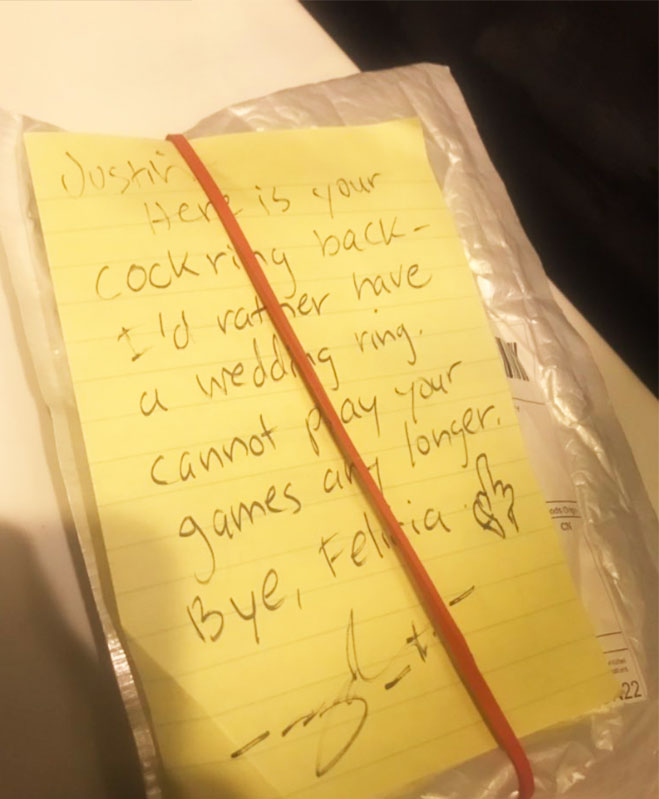 Justin
Here is your
cockring back-
I'd rather have
a wedding ring.
cannot play your
games any longer.
Bye, Felicia
22